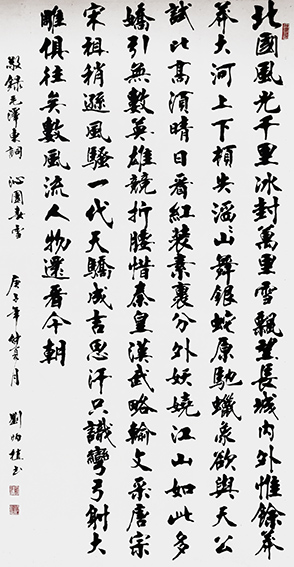 北國風光千里冰封萬里雪飄望長城內外惟餘莽
莽大河上下頓失滔〻山舞銀蛇原馳蠟象欲與天公
試比高須晴日看紅裝素裹分外妖嬈江山如此多
嬌引無數英雄競折腰惜秦皇漢武略輸文采唐宗
宋祖稍遜風騷一代天驕成吉思汗只識彎弓射大
雕俱往矣數風流人物還看今朝
敬錄毛澤東詞 沁園春雪 庚子年仲夏月 劉